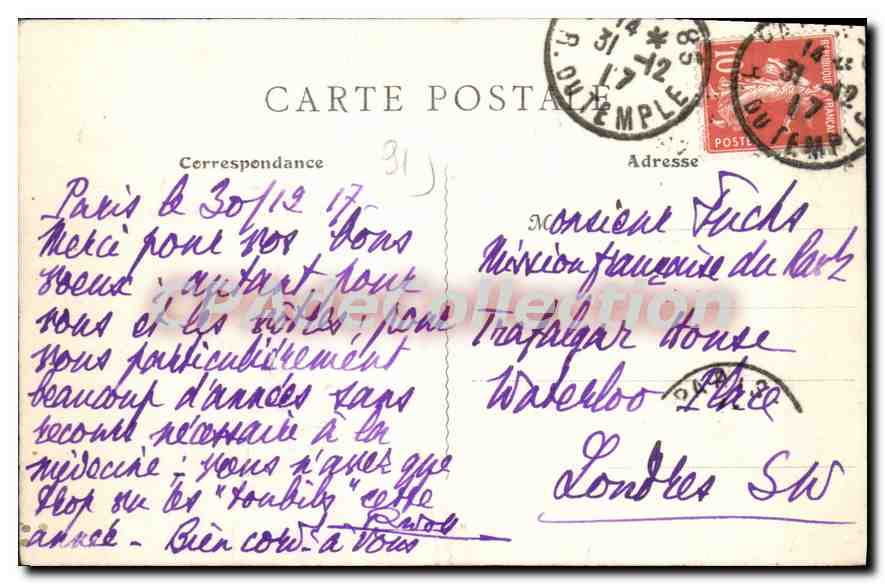 CARTE POSTALE
Correspondance
Adresse
91
Paris le 30/12 17
Merci pour vos bons
voeux : autant pour
vous et les vôtres, pour
vous particulièrement
beaucoup d'années sans
recours nécessaire à la
médecine : vous n'avez que
trop vu les "toubibs" cette
année - Bien cord. à vous
Monsieur Fuchs
Mission française du
Trafalgar House
Waterloo Place
Londres SW
14 *
31 -12
17
85
R. DU TEMPLE
14
31 -12
17
R. DU TEMPLE
REPUBLIQUE FRANÇAISE
10
POSTES
PARIS
CPArleCollection